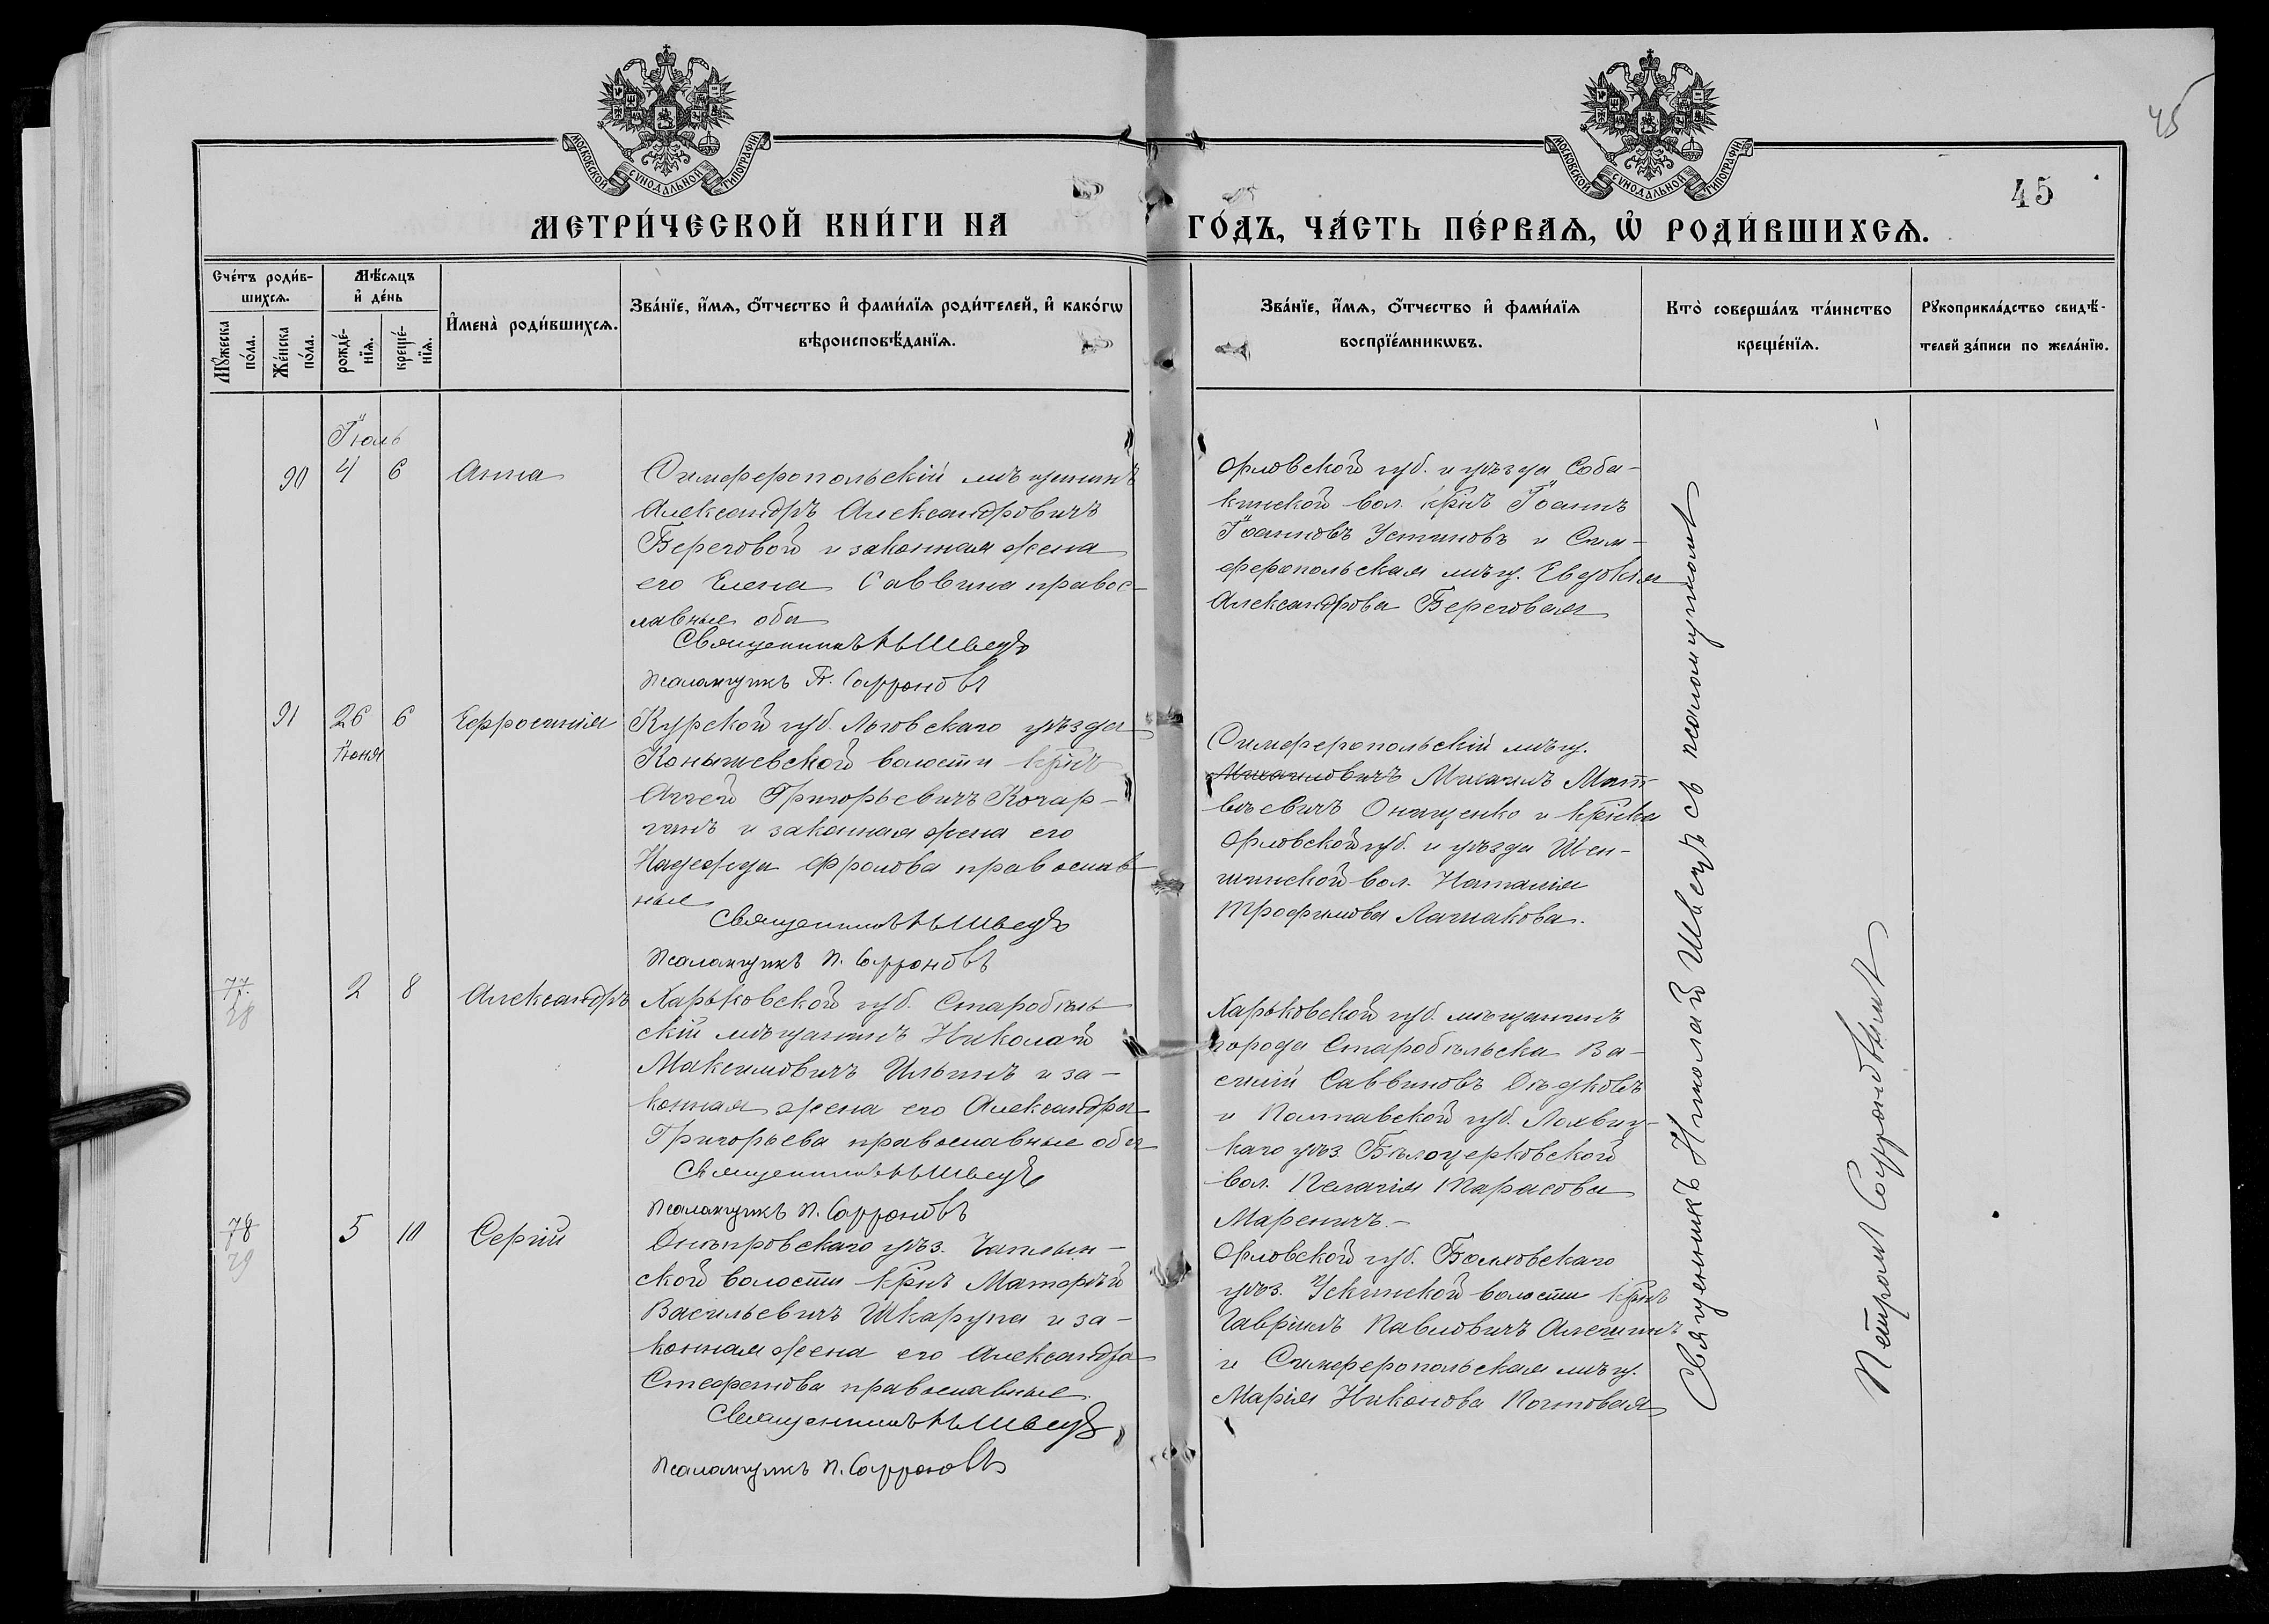 45
МОСКОВСКОЙ СѴНОДАЛЬНОЙ ТИПОГРАФІИ
МОСКОВСКОЙ СѴНОДАЛЬНОЙ ТИПОГРАФІИ
45
МЕТРИ́ЧЕСКОЙ КНИ́ГИ НА ГО́ДЪ, ЧА́СТЬ ПЕ́РВАѦ, Ѡ҆ РОДИ́ВШИХСѦ.
Сче́тъ роди́в-
шихсѧ.
Мꙋ́жеска по́ла.
Же́нска по́ла.
Мѣ́сѧцъ
и҆ де́нь
рожде́-
нїѧ.
креще́-
нїѧ.
И҆мена̀ роди́вшихсѧ.
Зва́нїе, и҆́мѧ, ѻ҆́тчество и҆ фами́лїѧ роди́телей, и҆ како́гѡ
вѣроисповѣ́данїѧ.
Зва́нїе, и҆́мѧ, ѻ҆́тчество и҆ фами́лїѧ
воспрїе́мникѡвъ.
Кто̀ соверша́лъ та́инство
креще́нїѧ.
Рꙋкоприкла́дство свидѣ́-
телей за́писи по жела́нїю.
Іюль
90 4 6 Анна
Симферопольскій мѣщанинъ
Александръ Александровичъ
Береговой и законная жена
его Елена Саввина правос-
лавные оба
Священникъ Н Швецъ
Псаломщикъ П. Софроновъ
Орловской губ. и уѣзда Соба-
кинской вол. кр̃нъ Іоаннъ
Іоанновъ Устиновъ и Сим-
феропольская мѣщ. Евдокія
Александрова Береговая
91 26 6 Ефросинія
Іюня
Курской губ. Льговскаго уѣзда
Конышевской волости кр̃нъ
Аггей Григорьевичъ Кочар-
гинъ и законная жена его
Надежда Фролова православ-
ные
Священникъ Н Швецъ
Псаломщикъ П. Софроновъ
Симферопольскій мѣщ.
Михаиловичъ Михаилъ Мат-
вѣевичъ Онищенко и кр̃нка
Орловской губ. и уѣзда Шен-
шинской вол. Наталія
Трофимова Лашакова.
77 2 8 Александръ
28
Харьковской губ. Старобѣль
скій мѣщанинъ Николай
Максимовичъ Ильинъ и за-
конная жена его Александра
Григорьева православные оба
Священникъ Н Швецъ
Псаломщикъ П. Софроновъ
Харьковской губ. мѣщанинъ
города Старобѣльска Ва-
силій Саввиновъ Дѣдковъ
и Полтавской губ. Лохвиц-
каго уѣз. Бѣлоцерковской
вол. Пелагія Тарасова
Мареничъ.-
78 5 10 Сергій
29
Днѣпровскаго уѣз. Чаплын-
ской волости кр̃нъ Матфѣй
Васильевичъ Шкарупа и за-
конная жена его Александра
Стефанова православные.
Священникъ Н Швецъ
Псаломщикъ П. Софроновъ
Орловской губ. Болховскаго
уѣз. Ускинской волости кр̃нъ
Гавріилъ Павловичъ Алешинъ
и Симферопольская мѣщ.
Марія Никонова Почтовая
Священникъ Николай Швецъ съ псаломщикомъ
Петромъ Софроновымъ